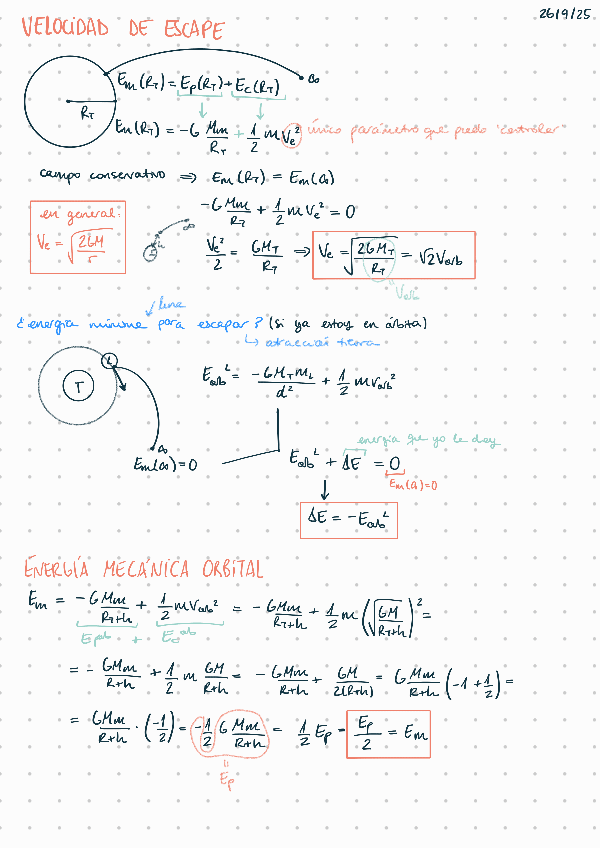 26/9/25
VELOCIDAD DE ESCAPE
Em(R_T) = Ep(R_T) + Ec(R_T)
∞
R_T
Em(R_T) = -G Mm/R_T + 1/2 m Ve² único parámetro que puedo "controlar"
campo conservativo ⇒ Em(R_T) = Em(∞)
-G Mm/R_T + 1/2 m Ve² = 0
en general:
Ve = √(2GM/r)
Ve²/2 = GM_T/R_T ⇒ Ve = √(2GM_T/R_T) = √2 Vorb
Vorb
luna
¿energía mínima para escapar? (si ya estoy en órbita)
↳ atracción tierra
L
T
Eorb^L = -G M_T m_L/d² + 1/2 m Vorb²
∞
Em(∞) = 0
energía que yo le doy
Eorb^L + ΔE = 0
Em(∞)=0
ΔE = -Eorb^L
ENERGÍA MECÁNICA ORBITAL
Em = -G Mm/(R_T+h) + 1/2 m Vorb² = -G Mm/(R_T+h) + 1/2 m (√(GM/(R_T+h)))² =
Ep^orb + Ec^orb
= - GMm/(R+h) + 1/2 m GM/(R+h) = - GMm/(R+h) + GM/2(R+h) = G Mm/(R+h) (-1 + 1/2) =
= GMm/(R+h) · (-1/2) = -1/2 G Mm/(R+h) = 1/2 Ep - Ep/2 = Em
"
Ep